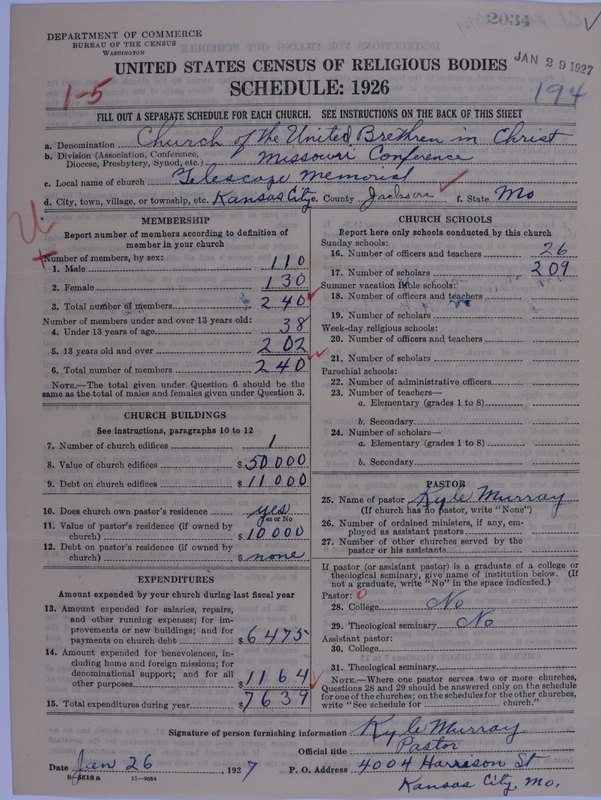 DEPARTMENT OF COMMERCE
BUREAU OF THE CENSUS
WASHINGTON
JAN 29 1927
UNITED STATES CENSUS OF RELIGIOUS BODIES
SCHEDULE: 1926
1-5
194
FILL OUT A SEPARATE SCHEDULE FOR EACH CHURCH. SEE INSTRUCTIONS ON THE BACK OF THIS SHEET
a. Denomination Church of the United Brethren in Christ
b. Division (Association, Conference, Diocese, Presbytery, Synod, etc.) Missouri Conference
c. Local name of church Telescope Memorial
d. City, town, village, or township, etc. Kansas City e. County Jackson f. State Mo
MEMBERSHIP
Report number of members according to definition of
member in your church
Number of members, by sex:
1. Male 110
2. Female 130
3. Total number of members 240
Number of members under and over 13 years old:
4. Under 13 years of age 38
5. 13 years old and over 202
6. Total number of members 240
NOTE.—The total given under Question 6 should be the
same as the total of males and females given under Question 3.
CHURCH BUILDINGS
See instructions, paragraphs 10 to 12
7. Number of church edifices 1
8. Value of church edifices $50.000
9. Debt on church edifices $11000
10. Does church own pastor's residence yes
Yes or No
11. Value of pastor's residence (if owned by
church) $10000
12. Debt on pastor's residence (if owned by
church) $none
EXPENDITURES
Amount expended by your church during last fiscal year
13. Amount expended for salaries, repairs,
and other running expenses; for im-
provements or new buildings; and for
payments on church debt $6475
14. Amount expended for benevolences, in-
cluding home and foreign missions; for
denominational support; and for all
other purposes 1164
15. Total expenditures during year $7639
CHURCH SCHOOLS
Report here only schools conducted by this church
Sunday schools:
16. Number of officers and teachers 26
17. Number of scholars 209
Summer vacation Bible schools:
18. Number of officers and teachers
19. Number of scholars
Week-day religious schools:
20. Number of officers and teachers
21. Number of scholars
Parochial schools:
22. Number of administrative officers
23. Number of teachers—
a. Elementary (grades 1 to 8)
b. Secondary
24. Number of scholars—
a. Elementary (grades 1 to 8)
b. Secondary
PASTOR
25. Name of pastor Kyle Murray
(If church has no pastor, write "None")
26. Number of ordained ministers, if any, em-
ployed as assistant pastors
27. Number of other churches served by the
pastor or his assistants
If pastor (or assistant pastor) is a graduate of a college or
theological seminary, give name of institution below. (If
not a graduate, write "No" in the space indicated.)
Pastor: 0
28. College No
29. Theological seminary No
Assistant pastor:
30. College
31. Theological seminary
NOTE.—Where one pastor serves two or more churches,
Questions 28 and 29 should be answered only on the schedule
for one of the churches; on the schedules for the other churches,
write "See schedule for church."
Signature of person furnishing information Kyle Murray
Official title Pastor
Date Jan 26, 1927 P. O. Address 4004 Harrison St
8-5518a 11-9054
Kansas City, Mo.